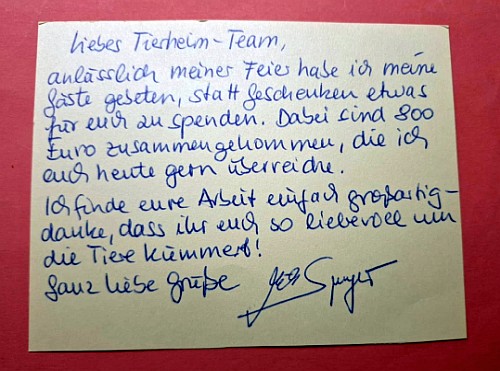 Liebes Tierheim-Team,
anlässlich meiner Feier habe ich meine
Gäste gebeten, statt Geschenken etwas
für euch zu spenden. Dabei sind 800
Euro zusammengekommen, die ich
euch heute gern überreiche.
Ich finde eure Arbeit einfach großartig-
danke, dass ihr euch so liebevoll um
die Tiere kümmert!
Ganz liebe Grüße